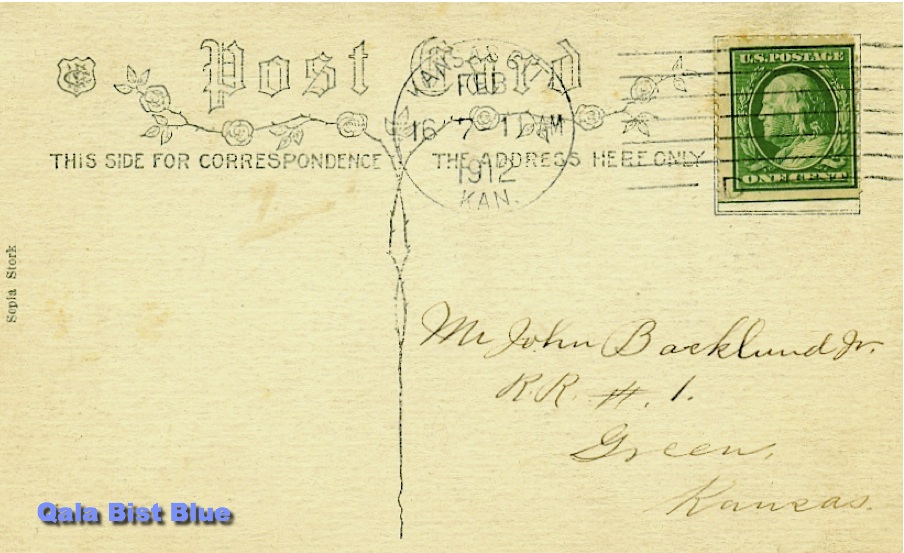 Post Card
THIS SIDE FOR CORRESPONDENCE
THE ADDRESS HERE ONLY
KANSAS CITY
FEB
16
7-11 AM
1912
KAN.
U.S. POSTAGE
ONE CENT
Sepia Stork
Mr John Backlund Jr.
R.R. #. 1.
Green,
Kansas.
Qala Bist Blue